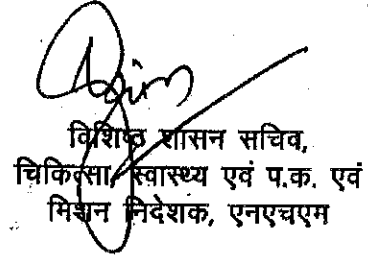 विशिष्ठ शासन सचिव,
चिकित्सा, स्वास्थ्य एवं प.क. एवं
मिशन निदेशक, एनएचएम